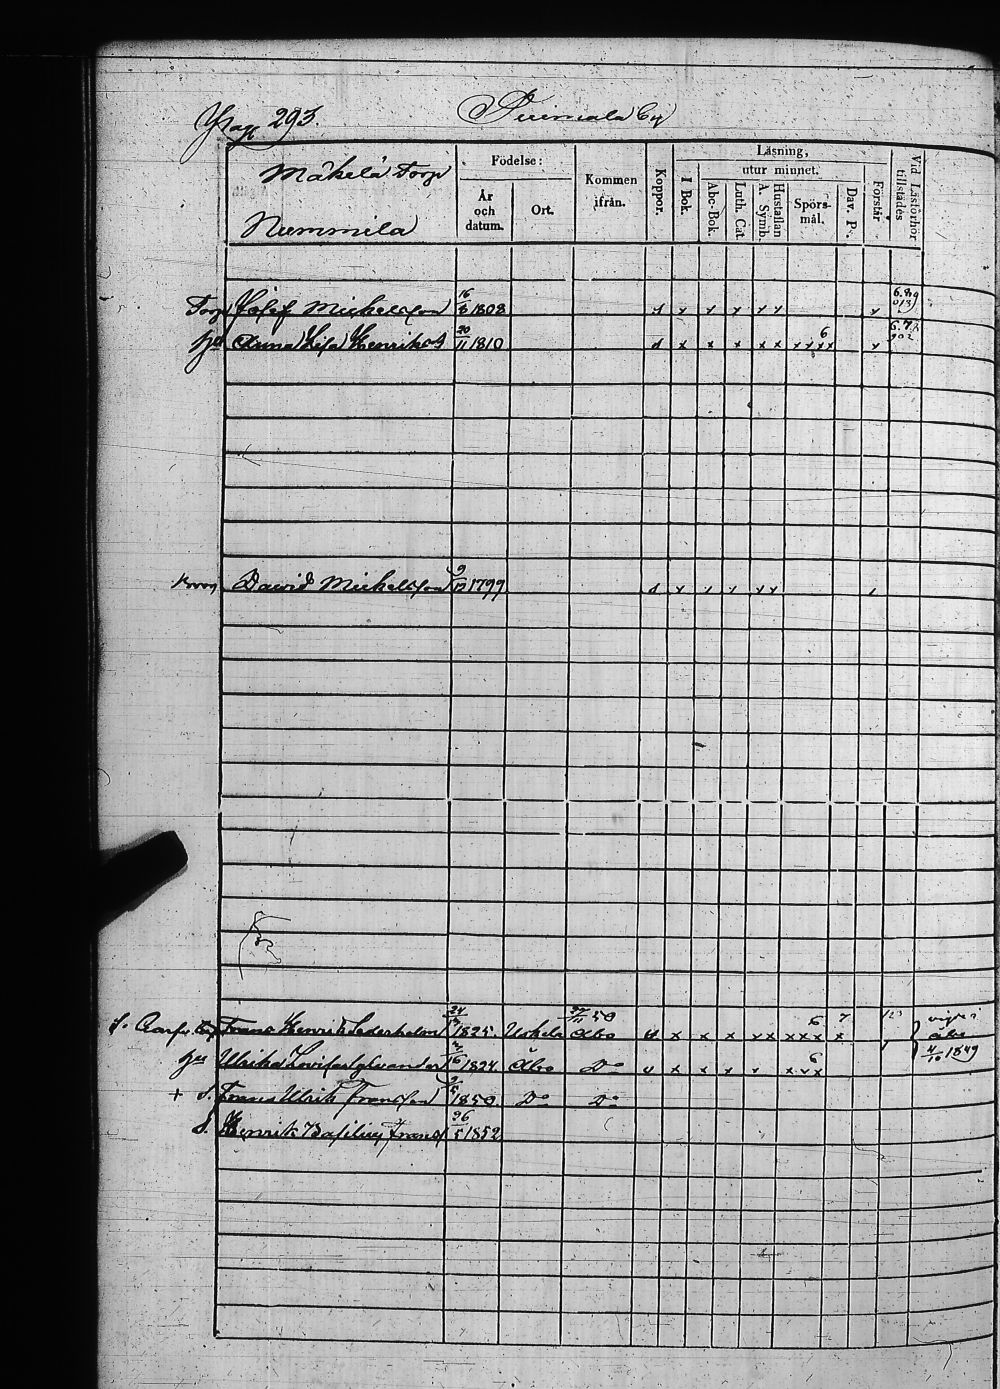 Pag 293. Suomala By
Mäkelä Torp
Nummila
Födelse:
År och datum.
Ort.
Kommen ifrån.
Koppor.
Läsning,
I Bok.
utur minnet.
Abc-Bok.
Luth. Cat.
Hustaflan A. Symb.
Spörsmål.
Dav. P.
Förstår
Vid Läsförhör tillstädes
Torp Josef Michelsson 16 1808 x x x x x x x
hu Anna Lisa Henriksd 20/11 1810 x x x x x x x x x x 6 x
David Michelsson 9 1799 x x x x x x
Frans Henrik Cederholm 24 1825. Uskela 27/11 50 Åbo x x x x x x x x x 6 x 7 vigde i Åbo 4/10 1849
hu Ulrika Lovisa Sylvander 1824. Åbo Do x x x x x x x x 6
+ S. Frans Ulrik Fransson 1850. Do Do
S. Henrik Basilius Transs 26/5 1852